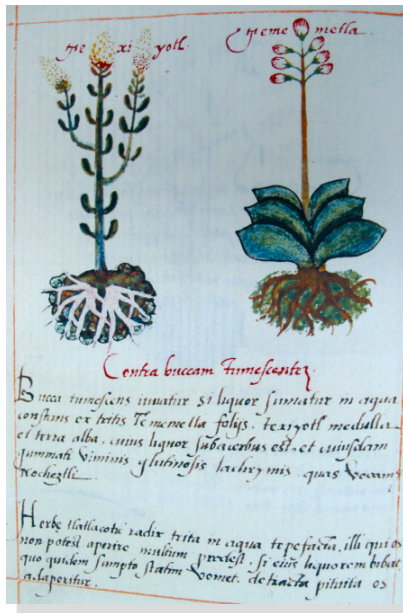 te xi yotl.
teme metla.
Contra buccam tumescentẽ.
Bucca tumescens iuvatur si liquor sumatur in aqua
constans ex tritis Tememetla folijs, texiyotl medulla
et terra alba, cuius liquor subacerbus est, et cuiusdam
gummati viminis glutinosis lachrymis quas vocant
Nocheztli.
Herbe tlatlacotic radix trita in aqua tepefacta, illi qui os
non potest aperire multum prodest. Si eius liquorem bibat
quo quidem sumpto statim vomet. detracta pituita os
adaperitur.